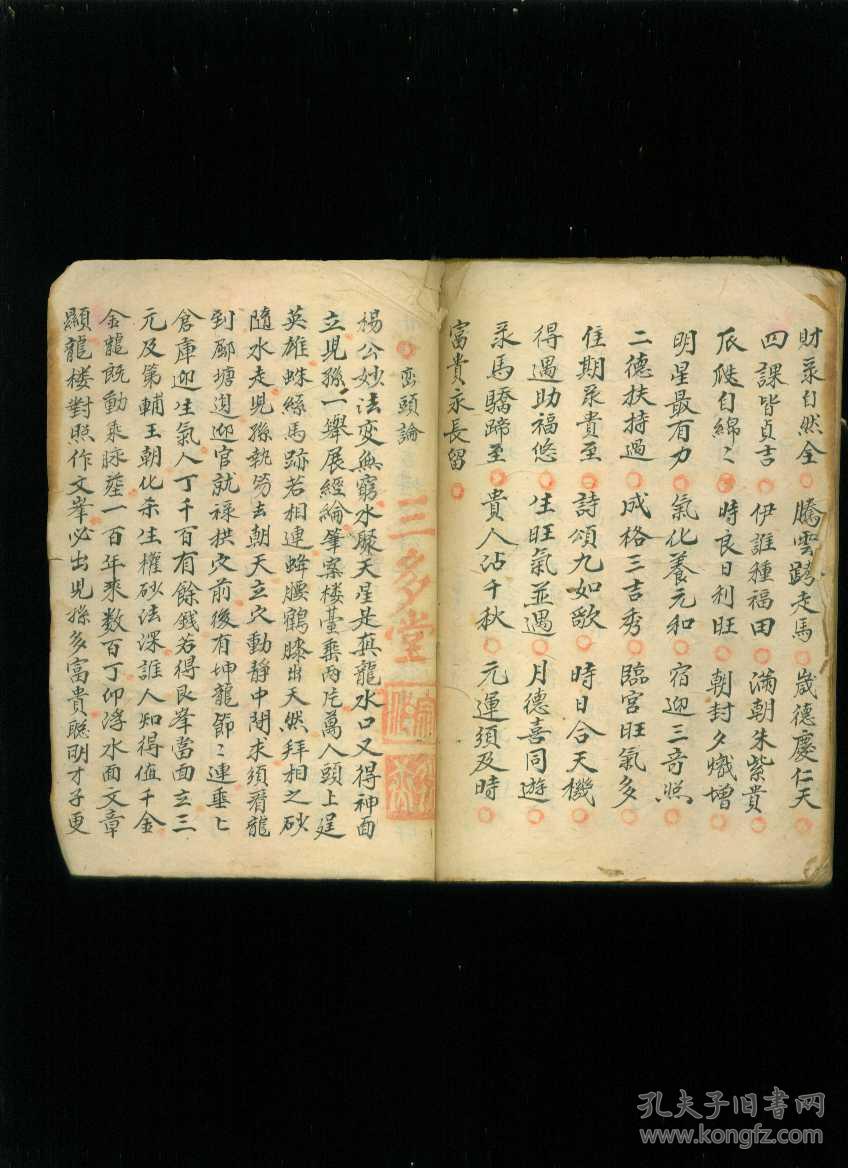 財泉自然全 騰雲跨走馬 歲德慶仁天
四課皆貞吉 伊誰種福田 滿朝朱紫貴
瓜瓞自綿〻 時良日利旺 朝封夕熾增
明星最有力 氣化養元和 宿迎三奇照
二德扶持過 成格三吉秀 臨宮旺氣多
佳期泉貴至 詩頌九如歌 時日合天機
得遇助福悠 生旺氣並遇 月德喜同遊
泉馬驕蹄至 貴人沾千秋 元運須及時
富貴永長留
巒頭論
三多堂
楊公妙法變無窮水聚天星是真龍水口又得神面
立見孫一舉展經綸筆案楼臺垂两片萬人頭上逞
英雄蛛絲馬跡若相連蜂腰鶴膝出天然拜相之砂
隨水走兒孫執笏去朝天立穴動靜中間求須看龍
到頭塘迎官就祿拱穴前後有坤龍節〻連垂匕
倉庫迎生氣人丁千百有餘錢若得艮峯當面立三
元及第輔王朝化杀生權砂法深誰人知得值千金
金龍既動乘脉葬一百年來数百丁仰浮水面文章
顯龍楼對照作文峯必出兒孫多富貴聰明才子更
孔夫子旧书网
www.kongfz.com